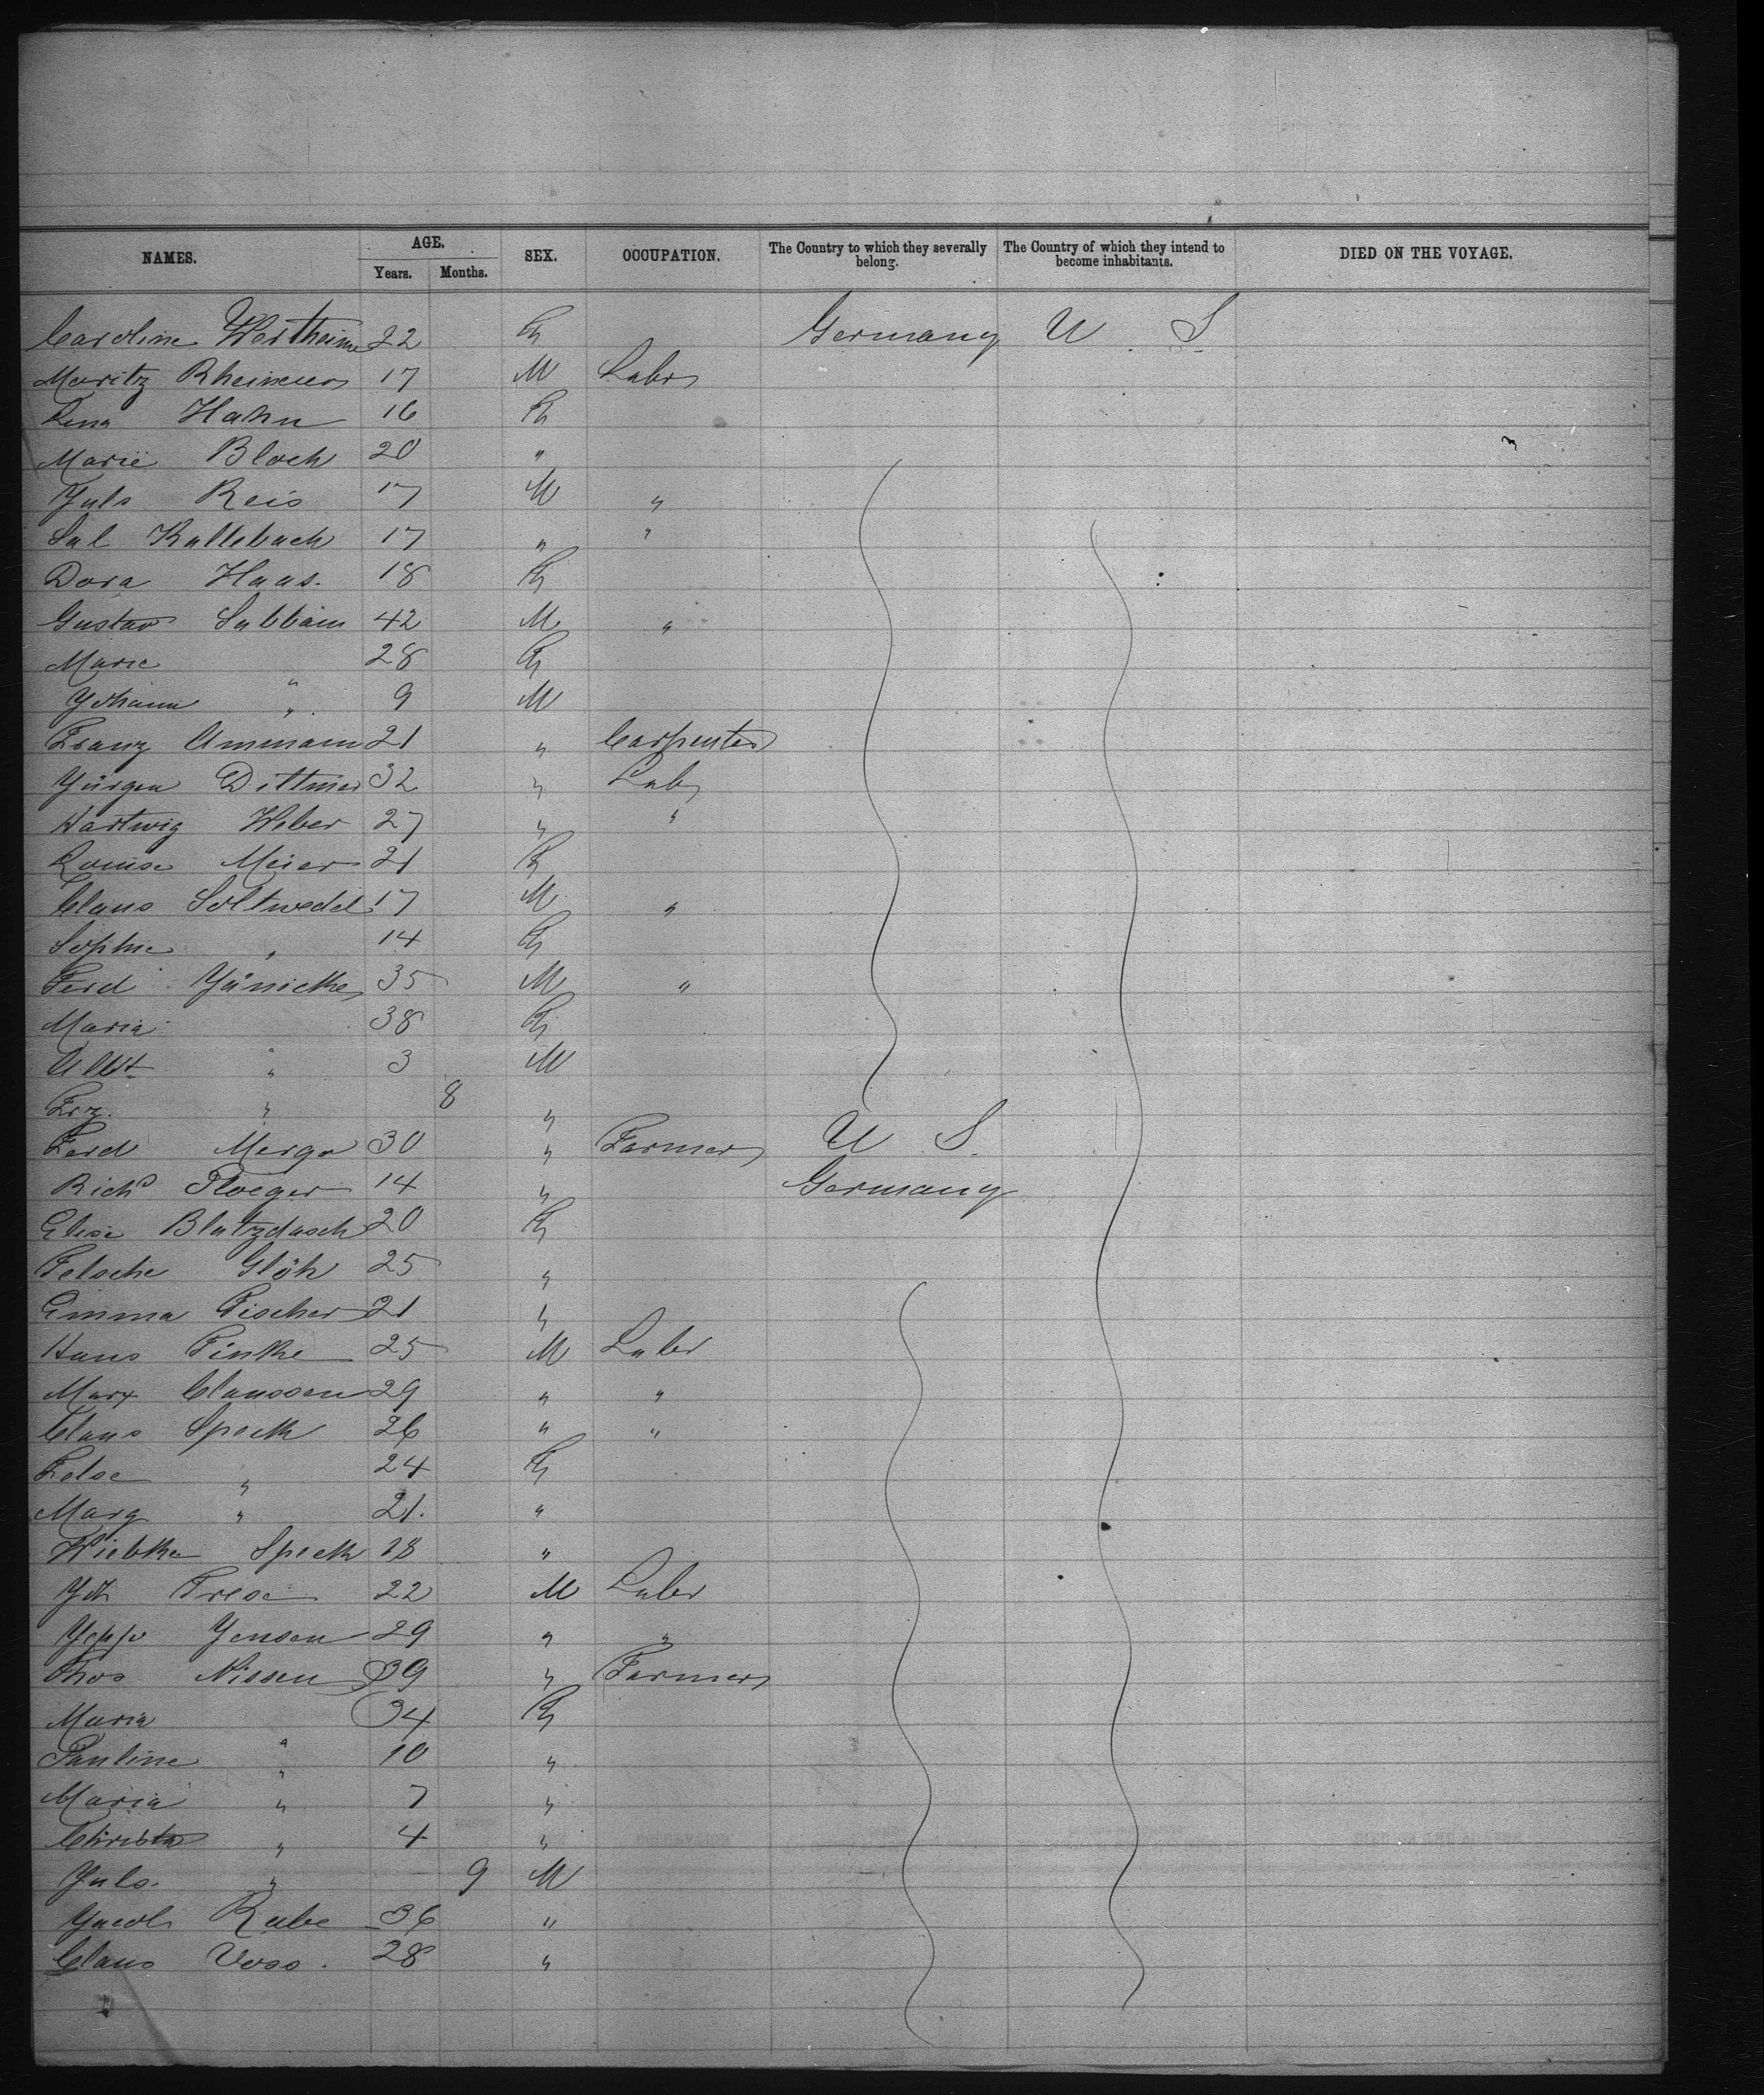 NAMES. AGE. SEX. OCCUPATION. The Country to which they severally belong. The Country of which they intend to become inhabitants. DIED ON THE VOYAGE.
Years. Months.
Caroline Wertheimer 22 Fe Germany U S
Moritz Rheimeurs 17 M Labr
Lena Hahn 16 Fe
Marie Bloch 20 "
Juls Reis 17 M "
Sal Kallebach 17 " "
Dora Haas. 18 Fe
Gustav Subbain 42 M "
Marie " 28 Fe
Johann " 9 M
Franz Ammann 21 " Carpenter
Jürgen Dittmer 32 " Labr
Hartwig Weber 27 " "
Louise Meier 21 Fe
Claus Soltwedel 17 M "
Sophie " 14 Fe
Ferd Jänicke 35 M "
Maria 38 Fe
Albt " 3 M
Frz. " 8 "
Ferd Mergo 30 " Farmer U S.
Richd Ploeger 14 " Germany
Elise Blutzdasch 20 Fe
Telsche Glöh 25 "
Emma Fischer 21 "
Hans Finke 25 M Labr
Marx Claussen 29 " "
Claus Speck 26 " "
Telse " 24 Fe
Marg " 21. "
Wiebke Speck 18 "
Joh Frese 22 M Labr
Jepp Jensen 29 " "
Thos Nissen 39 " Farmer
Maria " 34 Fe
Pauline " 10 "
Maria " 7 "
Christa " 4 "
Juls. " 9 M
Jacob Rabe 36 "
Claus Voss. 28 "